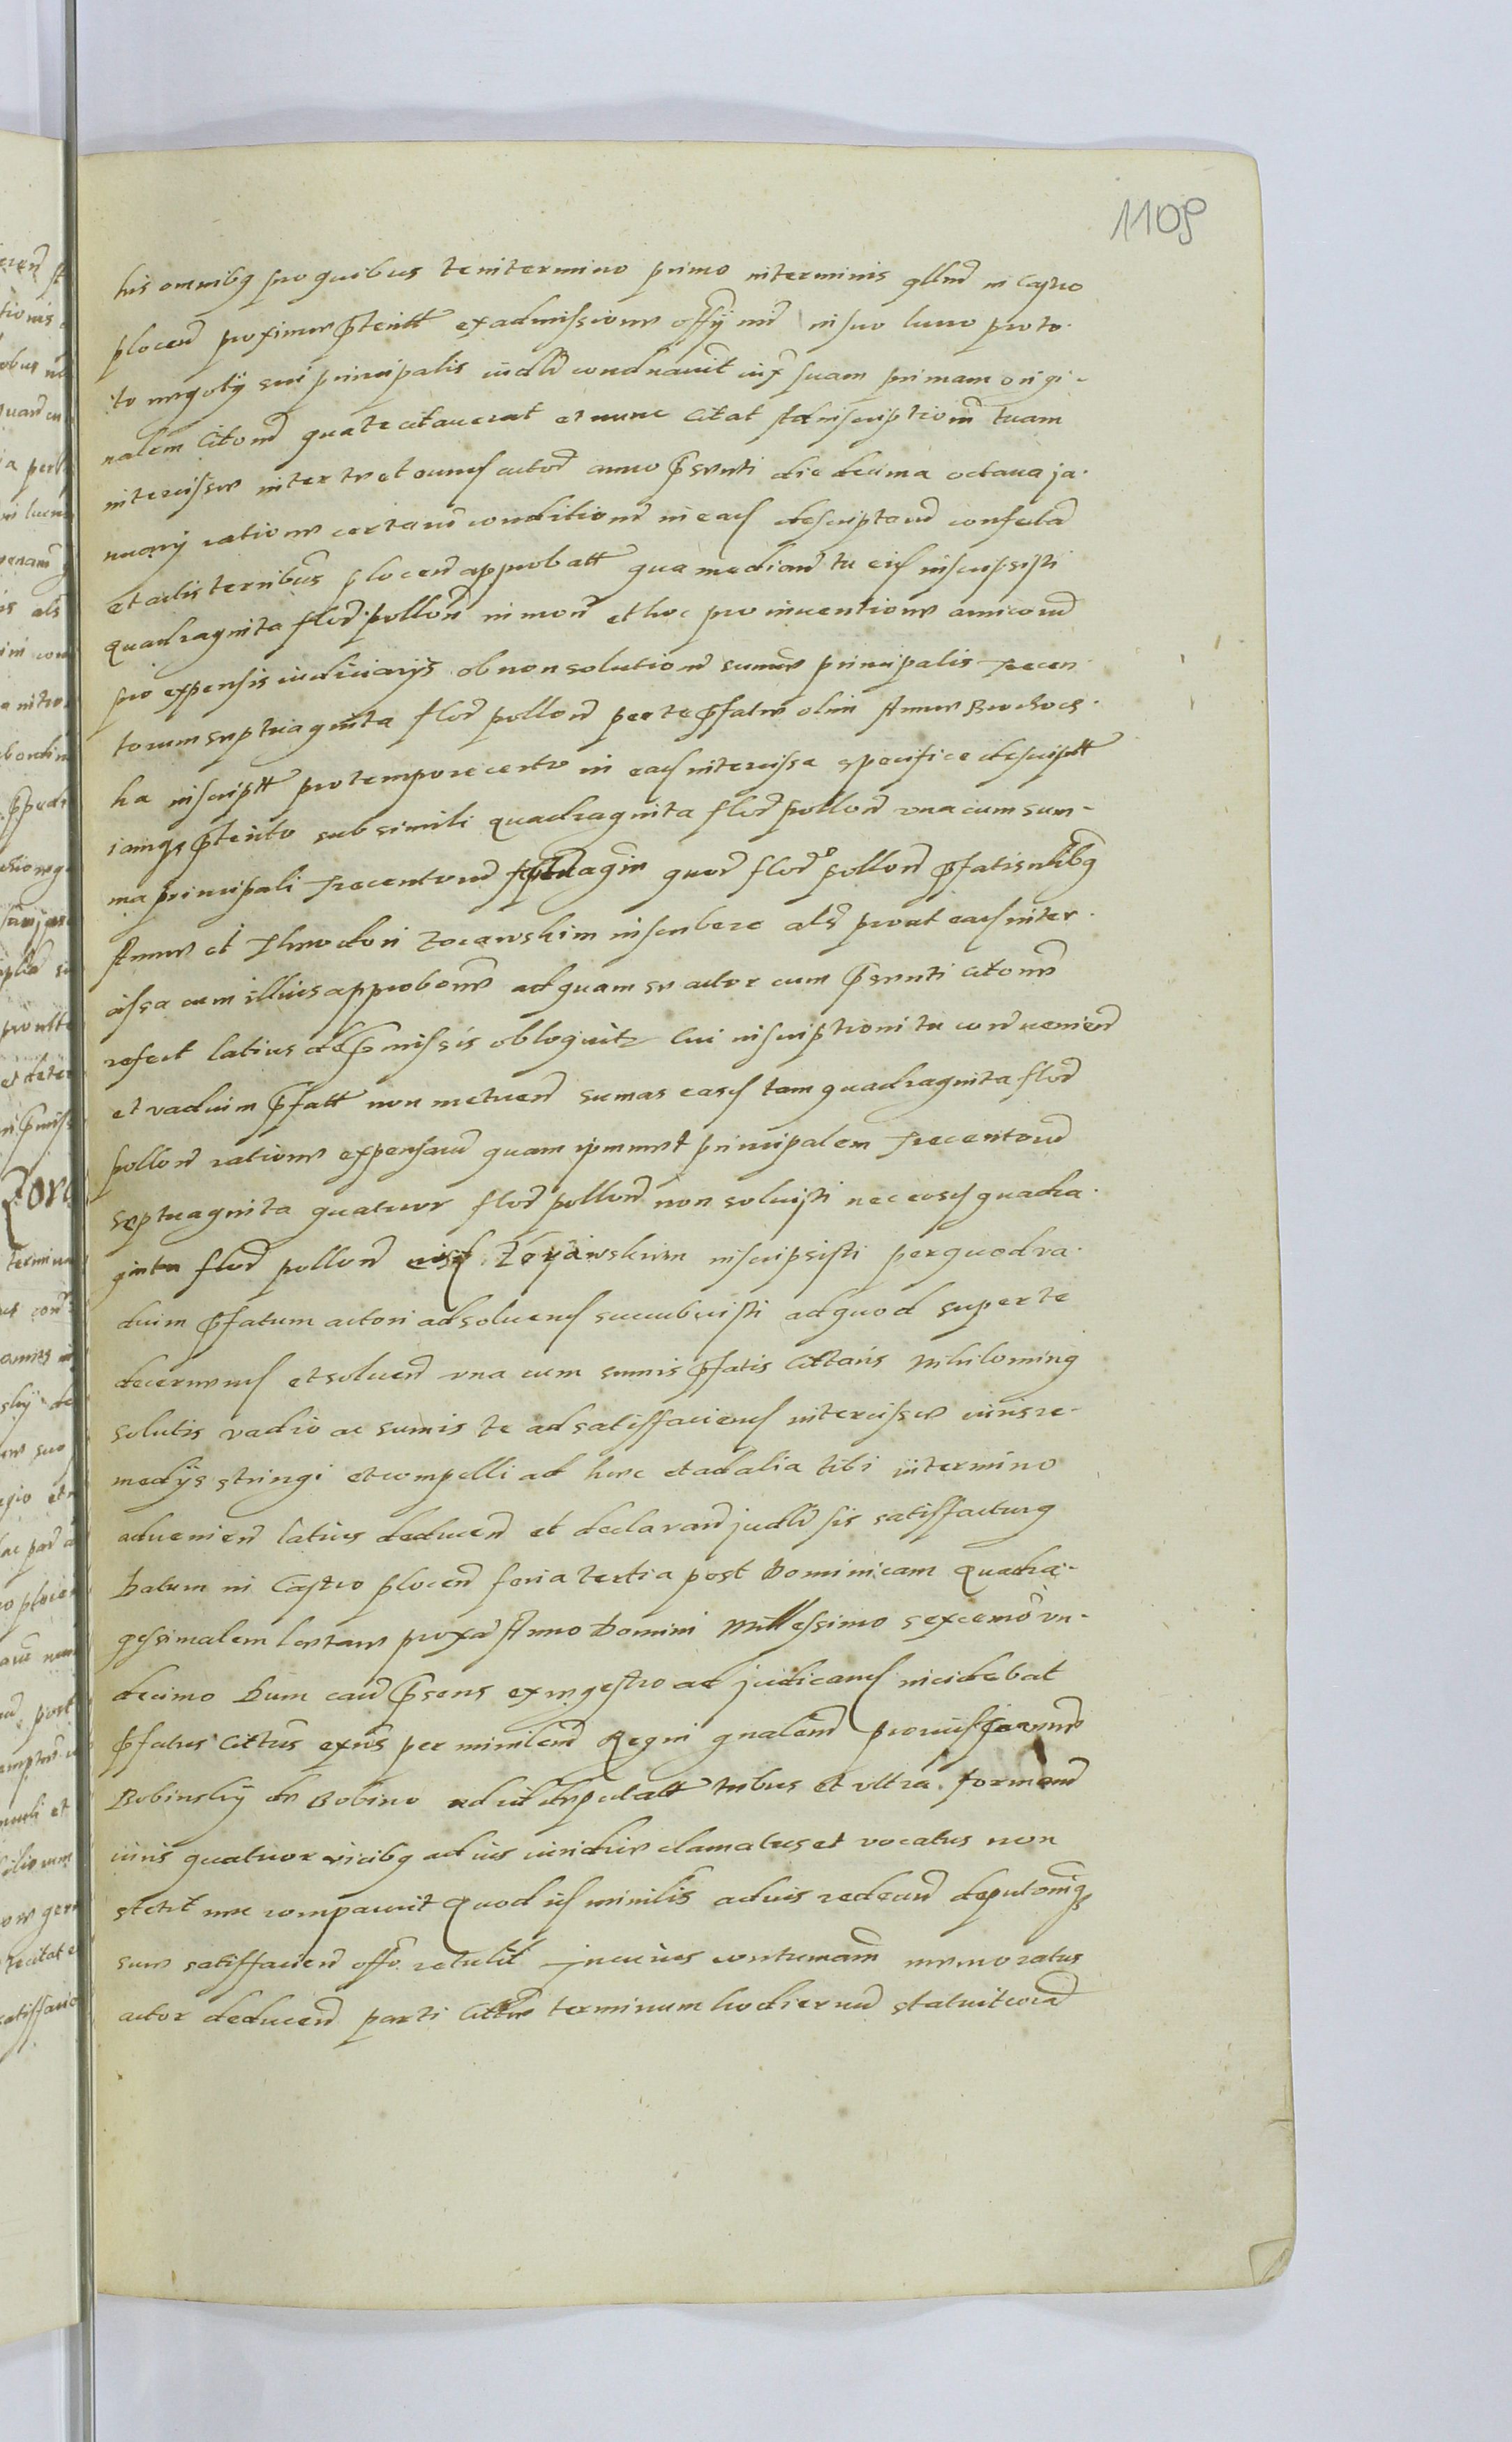 1109
his omnibq pro quibus te in termino primo in terminis qllnd in Castro
plocen proxime pteritt ex admissione offij nri in suo lucro proto
to negotij sui principalis iudlr condnauit iux suam primam origi-
nalem Citonem qua te citauerat et nunc Citat Ad inscriptionem tuam
intercissae inter te et eund actorem anno pnti die decima octaua ja-
nuarij ratione certarum conditionum in ead descriptarum confectam
et actis ternibus plocen approbatt qua median tu eid inscripsisti
quadraginta flor pollon in mon et hoc pro inuentione amicorum
pro expensis iudiciarijs ob non solutionem summae principalis trecen
torum septuaginta flor pollon per te pfatae olim Annae Brochoc-
ka inscriptt pro tempore certo in ead intercissa specifice descriptt
iamqs pterito sub simili quadraginta flor pollon una cum sum-
ma principali trecentorum septuagin quor flor pollon pfatis nlibq
Annae et Theodori inscribere als prout ead inter-
cissa cum illius approbone ad quam se actor cum pnti citone
refert latius de pmissis obloquitr Cui inscriptioni tu contrauenien
et vadium pfatt non metuen sumas easd tam quadraginta flor
pollon ratione expensarum quam principalem trecentorum
septuaginta quatuor flor pollon non soluisti nec eosd quadra-
ginta flor pollon eisd inscripsisti per quod va-
dium pfatum actori ad soluend succubuisti ad quod super te
decernend et soluen una cum sumis pfatis Cittaris Nihilominq
solutis vadio ac sumis te ad satisfaciend intercissae iuris re-
medijs stringi et compelli ad hoc et ad alia tibi in termino
aduenien latius deducen et declaran judlr sis satisfacturq
Datum in Castro plocen feria tertia post Dominicam Quadra-
gessimalem Laetare proxa Anno Domini Millessimo sexcemo vn-
decimo Dum causa pnsens ex regestro ad judicand incidebat
pfatus Cittus exns per minilem Regni gnalem
Bobinskij de Bobino ad id deputatt tribus et vltra formam
iuris quatuor vicibq ad ius iuridice clamatus et vocatus non
stetit nec comparuit Quod id minilis ad ius redeun deputoniqs
suae satisfacien offo retulit In cuius contumam memoratus
actor deducen parti Cittae terminum hodiernum statuit coram